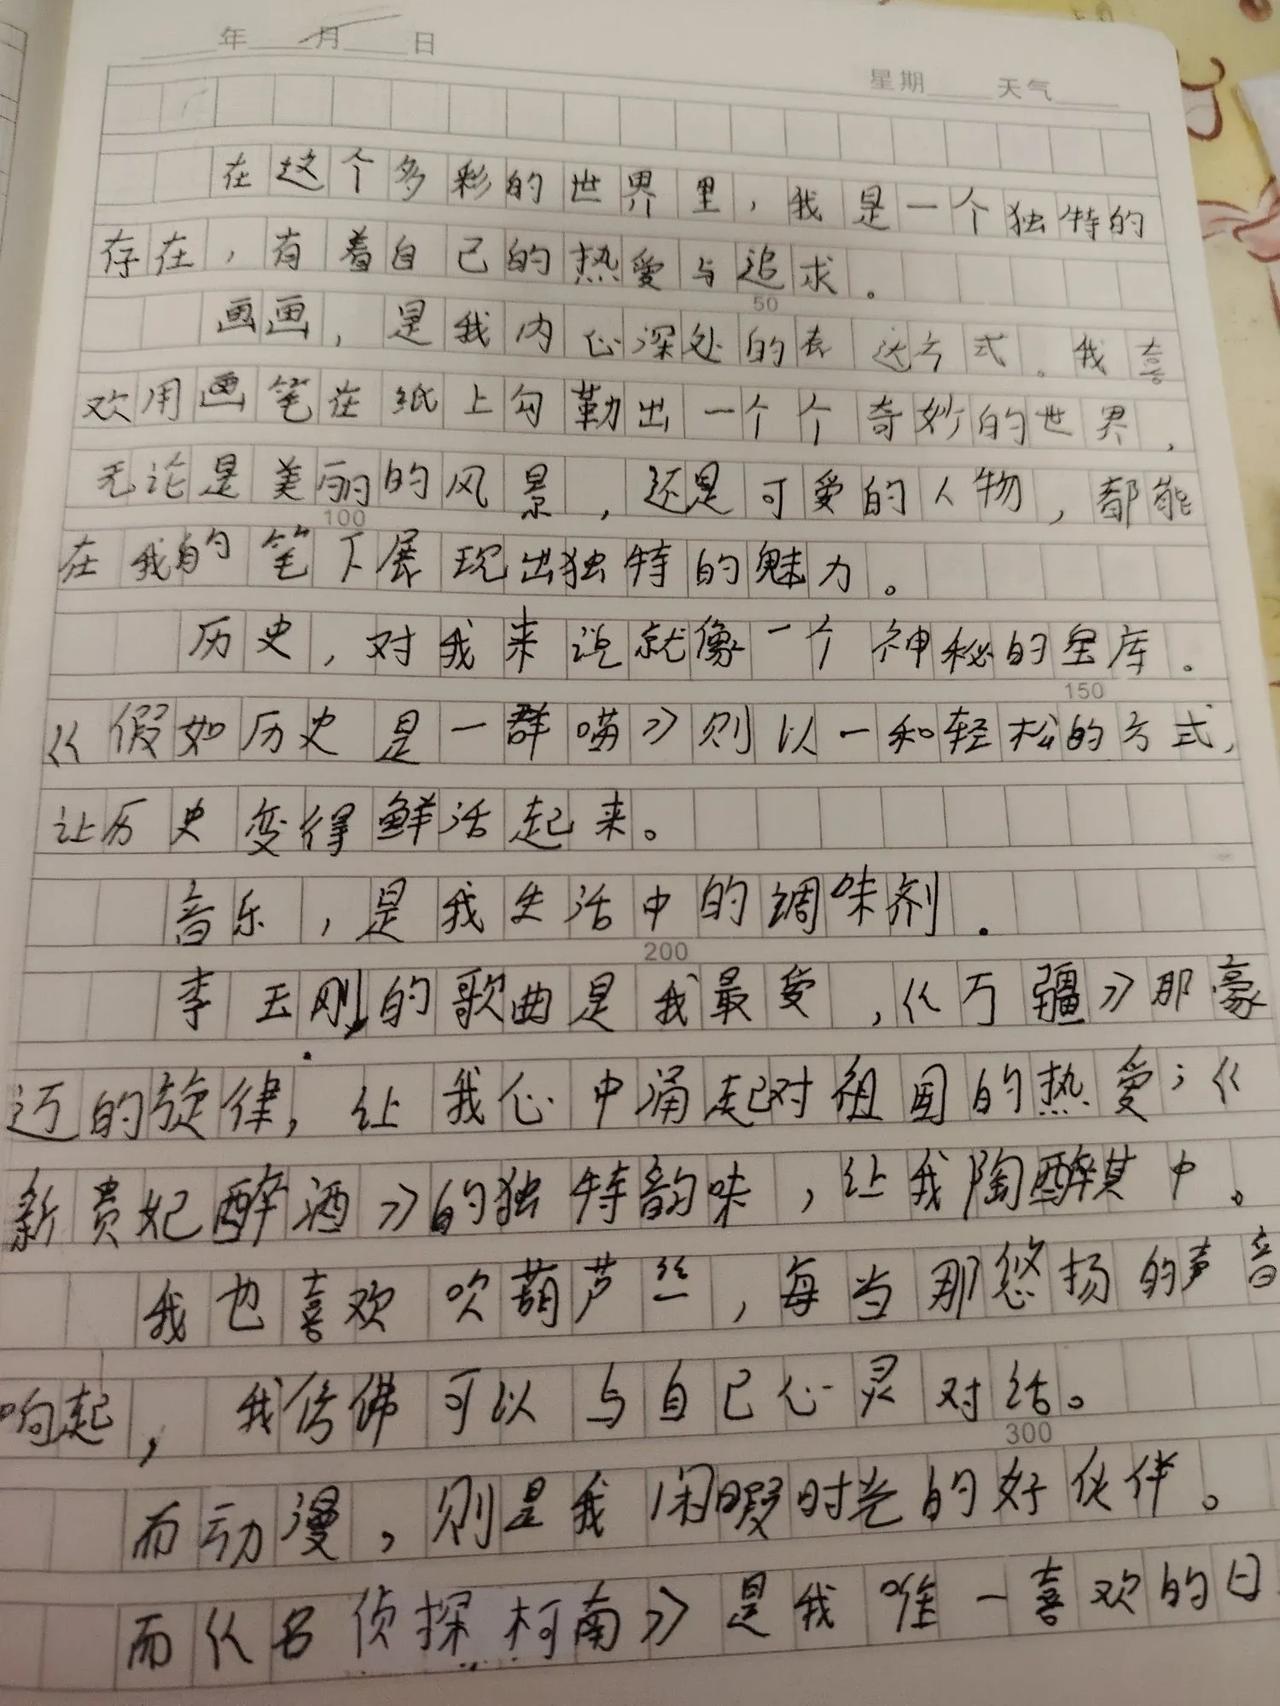 年 月 日
星期 天气
在这个多彩的世界里，我是一个独特的
存在，有着自己的热爱与追求。
50
画画，是我内心深处的表达方式。我喜
欢用画笔在纸上勾勒出一个个奇妙的世界，
无论是美丽的风景，还是可爱的人物，都能
100
在我的笔下展现出独特的魅力。
历史，对我来说就像一个神秘的宝库。
150
《假如历史是一群喵》则以一种轻松的方式，
让历史变得鲜活起来。
音乐，是我生活中的调味剂.
200
李玉刚的歌曲是我最爱，《万疆》那豪
迈的旋律，让我心中涌起对祖国的热爱；《
新贵妃醉酒》的独特韵味，让我陶醉其中。
我也喜欢吹葫芦丝，每当那悠扬的声音
响起，我仿佛可以与自己心灵对话。
300
而动漫，则是我闲暇时光的好伙伴。
而《名侦探柯南》是我唯一喜欢的日